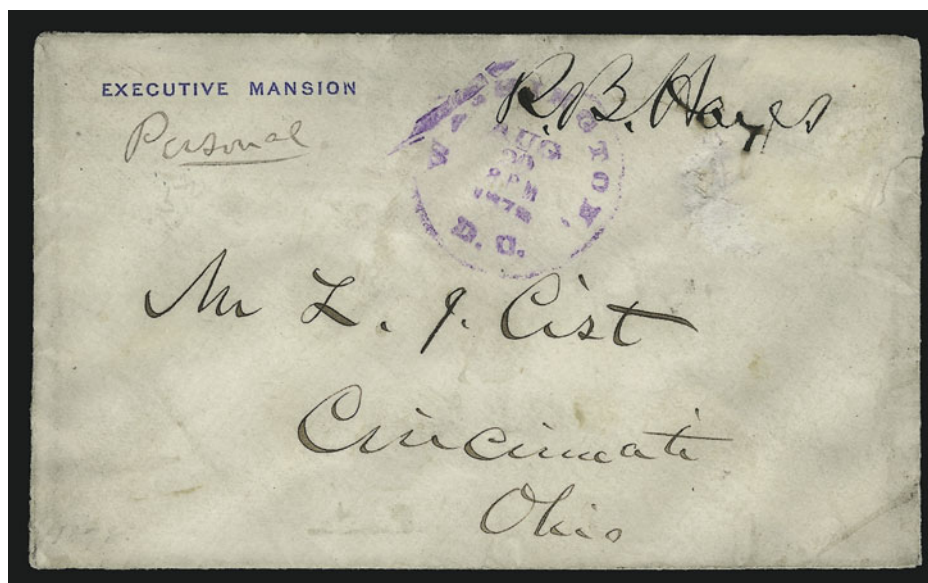 EXECUTIVE MANSION
Personal
R.B. Hayes
WASHINGTON
AUG
PM
D.C.
Mr L. J. Cist
Cincinnati
Ohio